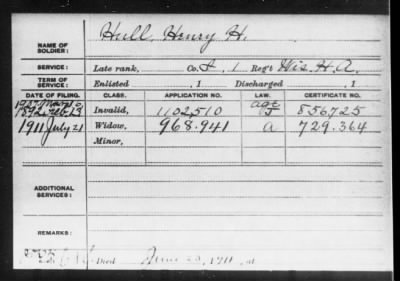 NAME OF SOLDIER: Hull, Henry H.
SERVICE: Late rank, Co. I, 1 Reg't Wis. H. A.
TERM OF SERVICE: Enlisted , 1 Discharged , 1
DATE OF FILING. CLASS. APPLICATION NO. LAW. CERTIFICATE NO.
1907 Mar 16 age
1892 Feb 13 Invalid, 1102,510 856,725
1911 July 21 Widow, 968.941 a 729.364
Minor,
ADDITIONAL SERVICES:
REMARKS:
Died June 20, 1911, at